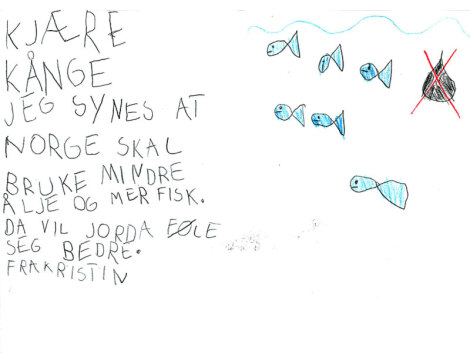 KJÆRE
KÅNGE
JEG SYNES AT
NORGE SKAL
BRUKE MINDRE
ÅLJE OG MER FISK.
DA VIL JORDA FØLE
SEG BEDRE.
FRAKRISTIN